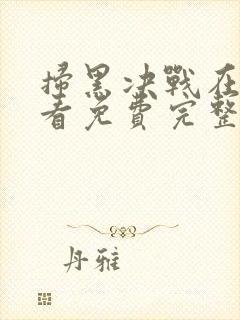 掃黑决戰在
看免費完整
丹雅